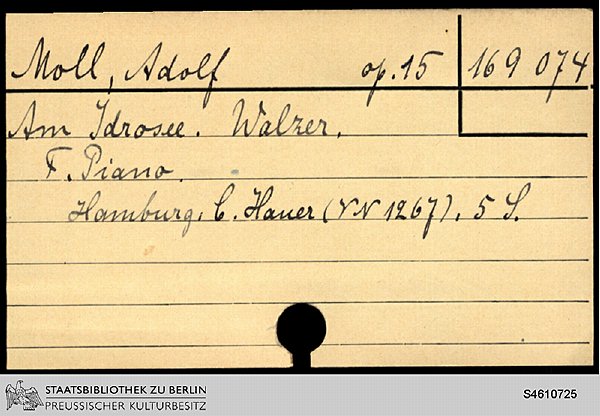 Moll, Adolf op. 15 169 074
Am Idrosee. Walzer.
F. Piano.
Hamburg: C. Hauer (VN 1267). 5 S.
STAATSBIBLIOTHEK ZU BERLIN
PREUSSISCHER KULTURBESITZ
S4610725